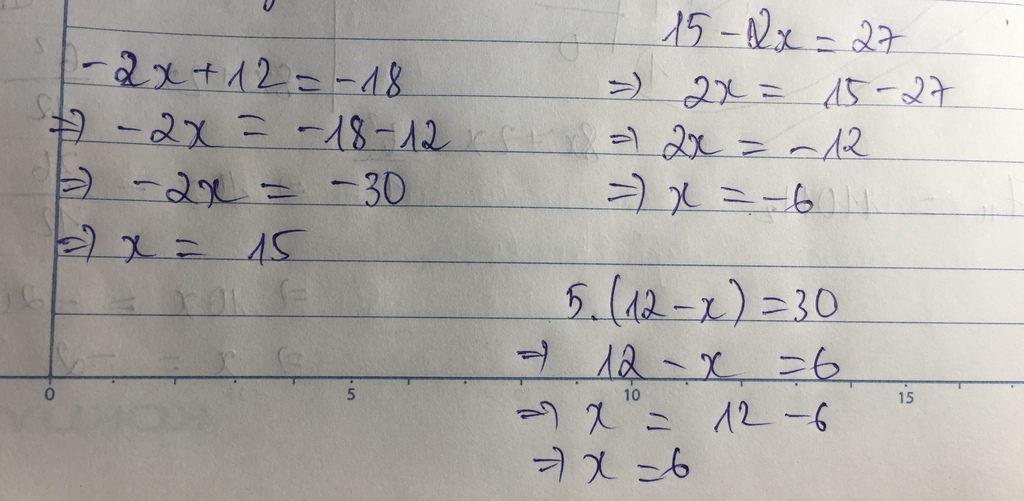 -2x+12=-18
=> -2x = -18-12
=> -2x = -30
=> x = 15
15-2x=27
=> 2x = 15-27
=> 2x = -12
=> x = -6
5.(12-x)=30
=> 12-x =6
=> x = 12-6
=> x =6
0 5 10 15